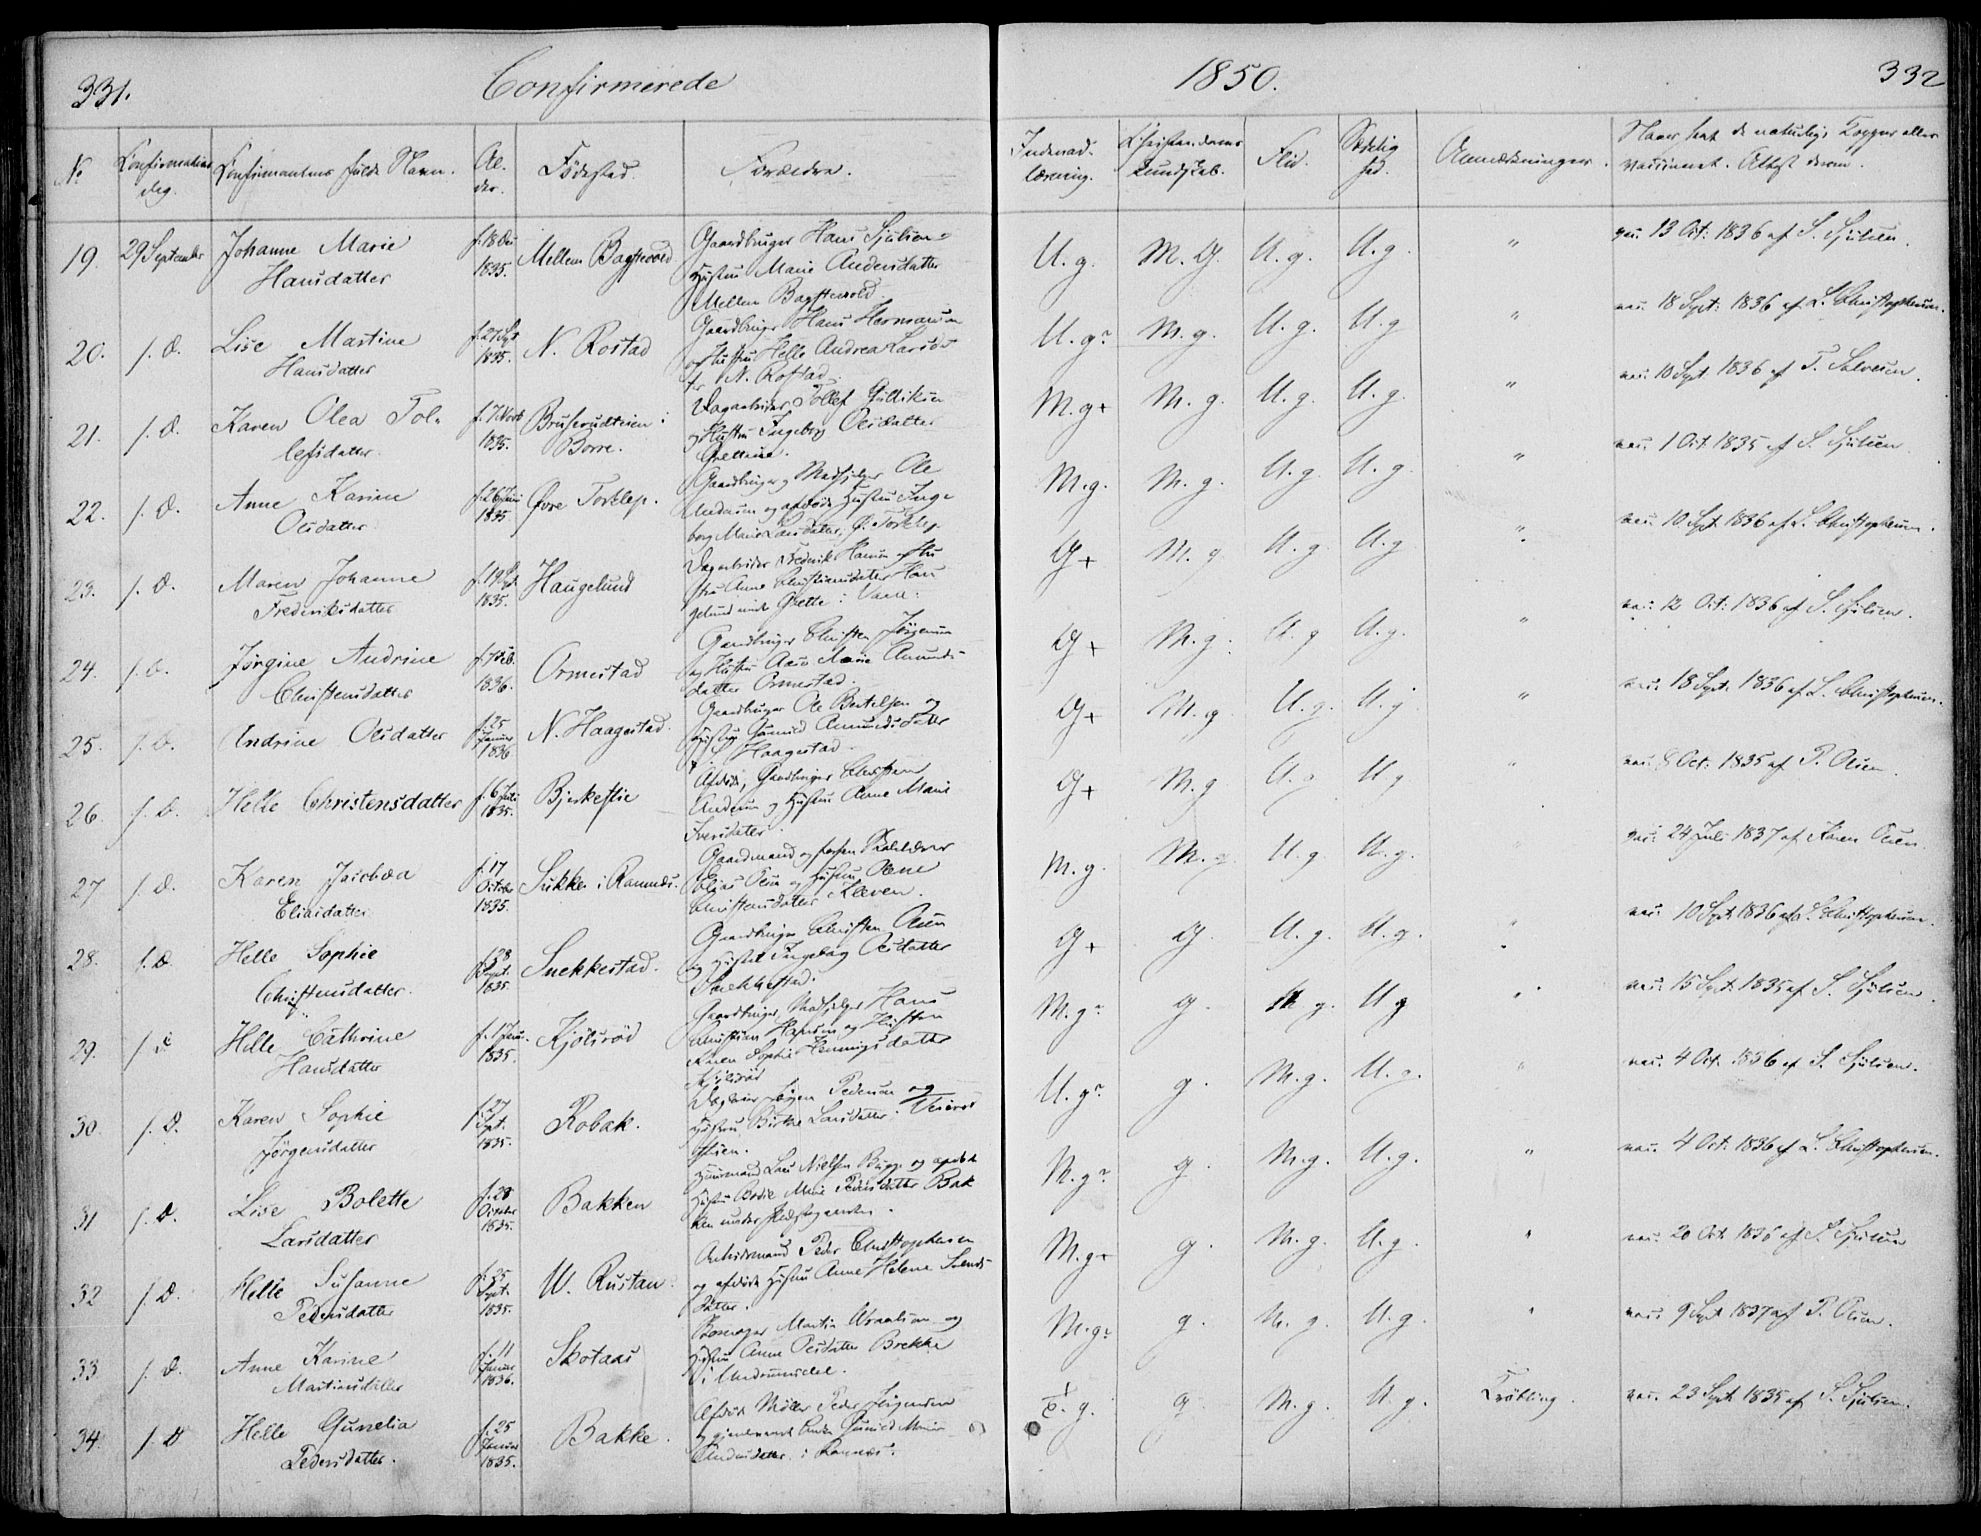 331.
Confirmerede
1850.
332
No
Confirmations dag.
Confirmantens fulde Navn.
Al-
der.
Födested.
Forældre.
Indenad-
læsning.
Christendoms
Kundskab.
Flid.
Sædelig
hed.
Anmærkninger.
Haver havt de naturlige Kopper eller
vaccineret. Attest derom.
19. 29 September Johanne Marie
Hansdatter
f. 18 Dec
1835.
Mellem
Gaardbruger Hans Sjulsen
Hustru Marie Andersdatter
Mellem
U. g. M. G. U. g. U. g. "
vac. 13 Oct: 1836 af S. Sjulsen.
20. s. D. Lise Martine
Hansdatter
f. 27 Sept
1835.
N. Rostad
Gaardbruger Hans Hermansen
og Hustru Helle Andrea Larsdat
ter N. Rostad.
U. g? M. g. U. g. U. g "
vac. 18 Sept: 1836 af L. Christophersen.
21. s. D. Karen Olea Tol-
lefsdatter.
f. 7 Novb
1835.
Bruserudteien i
Borre.
Dagarbeider Tollef
og Hustru Ingeborg Olsdatter
M. g+ M. g. U. g. U. g. "
vac. 10 Sept. 1836 af T. Salvesen.
22. s. D. Anne Karine
Olsdatter
f. 26 Juni
1835.
Øvre Torklep.
Gaardbruger og Medhjelper Ole
Andersen og afdøde Hustru Inge
borg Marie Larsdatter, Ø. Torklep
M. g. M. g. U. g. U. g. "
vac. 1 Oct 1835 af S. Sjulsen
23. s. D. Maren Johanne
Frederiksdatter
f. 19 Sept
1835.
Haugelund
Dagarbeider Frederik Hansen og Hu
stru Anne Christiansdatter Hau
gelund
G+ M. g U. g. U. g "
vac. 10 Sept 1836 af L. Christophersen.
24. s. D. Jörgine Andrine
Christensdatter
f. 7 Feb.
1836.
Ormestad
Gaardbruger Christen Jörgensen
og Hustru Marie Amunds-
datter Ormestad.
G+ M. g. U. g U. g. "
vac: 12 Oct: 1836 af S. Sjulsen.
25. s. D. Andrine Olsdatter
f. 25
Januar
1836
N. Haagestad.
Gaardbruger Ole Bertelsen og
Hustru Gunild Amundsdatter
Haagestad.
G+ M. g. U. g. U. g. "
vac. 18 Sept. 1836 af L. Christophersen.
26. s. D. Helle Christensdatter
f. 6 Juli
1835.
Bjerkeslie
Afdöde, Gaardbruger Christen
Andersen og Hustru Anne Marie
Iversdatter.
G+ M. g U. g U. g "
vac. 8 Oct: 1835 af P. Olsen.
27 s. D. Karen Jacobea
Eliasdatter
f. 17
October
1835.
Sukke i Ramnæs.
Gaardmand og forhen Skolelærer
Elias Olsen og Hustru
Christensdatter Kleven.
M. g. M. g U. g U. g. "
vac: 24 Juli 1837 af Olsen.
28. s. D. Helle Sophie
Christensdatter.
f. 28
Sept.
1835.
Snekkestad.
Gaardbruger Christen Olsen
og Hustru Ingeborg Olsdatter
Snekkestad.
G+ G. U. g. U. g. "
vac. 10 Sept 1836 af L. Christophersen.
29. s. D. Helle Cathrine
Hansdatter
f. 1 Janu.
1835.
Kjölsröd
Gaardbruger, Medhjelper Hans
Christian Hansen og Hustru
Karen Sophie Henningsdatter
Kjölsröd
M. g? g. M. g. U. g "
vac. 15 Sept. 1835 af S. Sjulsen.
30. s. D. Karen Sophie
Jörgensdatter
f. 27
Sept.
1835.
Robak.
Jörgen Pedersen og
Hustru Birthe Larsdatter
U. g? g. M. g. U. g. "
vac. 4 Oct. 1836 af S. Sjulsen.
31 s. D. Lise Bolette
Larsdatter
f. 28
October
1835.
Bakken
Huusmand Lars Nielsen og afdöde
Hustru Marie Pedersdatter Bak
ken under Præstegaarden.
M. g? g. M. g. U. g. "
vac. 4 Oct: 1836 af L. Christophersen.
32 s. D. Helle Susanne
Pedersdatter
f. 25
Sept.
1835.
W. Rustan.
Arbeidsmand Peder Christophersen
og afdöde Hustru Anne Helene Svends-
datter.
M. g+ g. M. g. U. g. "
vac. 20 Oct. 1836 af S. Sjulsen
33 s. D. Anne Karine
Martinsdatter
f. 11
Januar
1836.
Skotaas
Martin og
Hustru Anne Olsdatter Brekke
i Undrumsdal.
M. g? g. M. g. U. g. "
vac. 9 Sept 1837 af P. Olsen.
34. s. D Helle Gunelia
Pedersdatter.
f. 25
Januar
1835.
Bakke.
Afdöde Möller Peder Jörgensen
og gjenlevende Enke Gunild Marie
Andersdatter i Ramnæs.
T. g. g M. g. U. g. Tvilling.
vac. 23 Sept 1835 af S. Sjulsen.